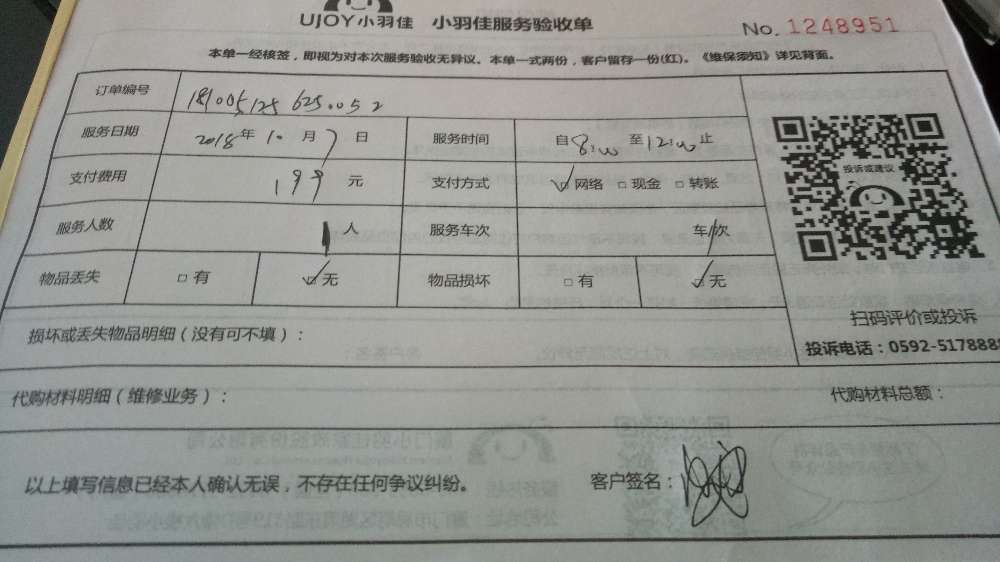 UJOY小羽佳 小羽佳服务验收单
No. 1248951
本单一经核签，即视为对本次服务验收无异议。本单一式两份，客户留存一份(红)。《维保须知》详见背面。
订单编号 181005125625.052
服务日期 2018年10月7日 服务时间 自8:00至12:00止
支付费用 199元 支付方式 ☑网络 □现金 □转账
服务人数 1人 服务车次 车/次
物品丢失 □有 ☑无 物品损坏 □有 ☑无
投诉或建议
扫码评价或投诉
投诉电话：0592-5178888
损坏或丢失物品明细（没有可不填）：
代购材料明细（维修业务）： 代购材料总额：
以上填写信息已经本人确认无误，不存在任何争议纠纷。 客户签名：